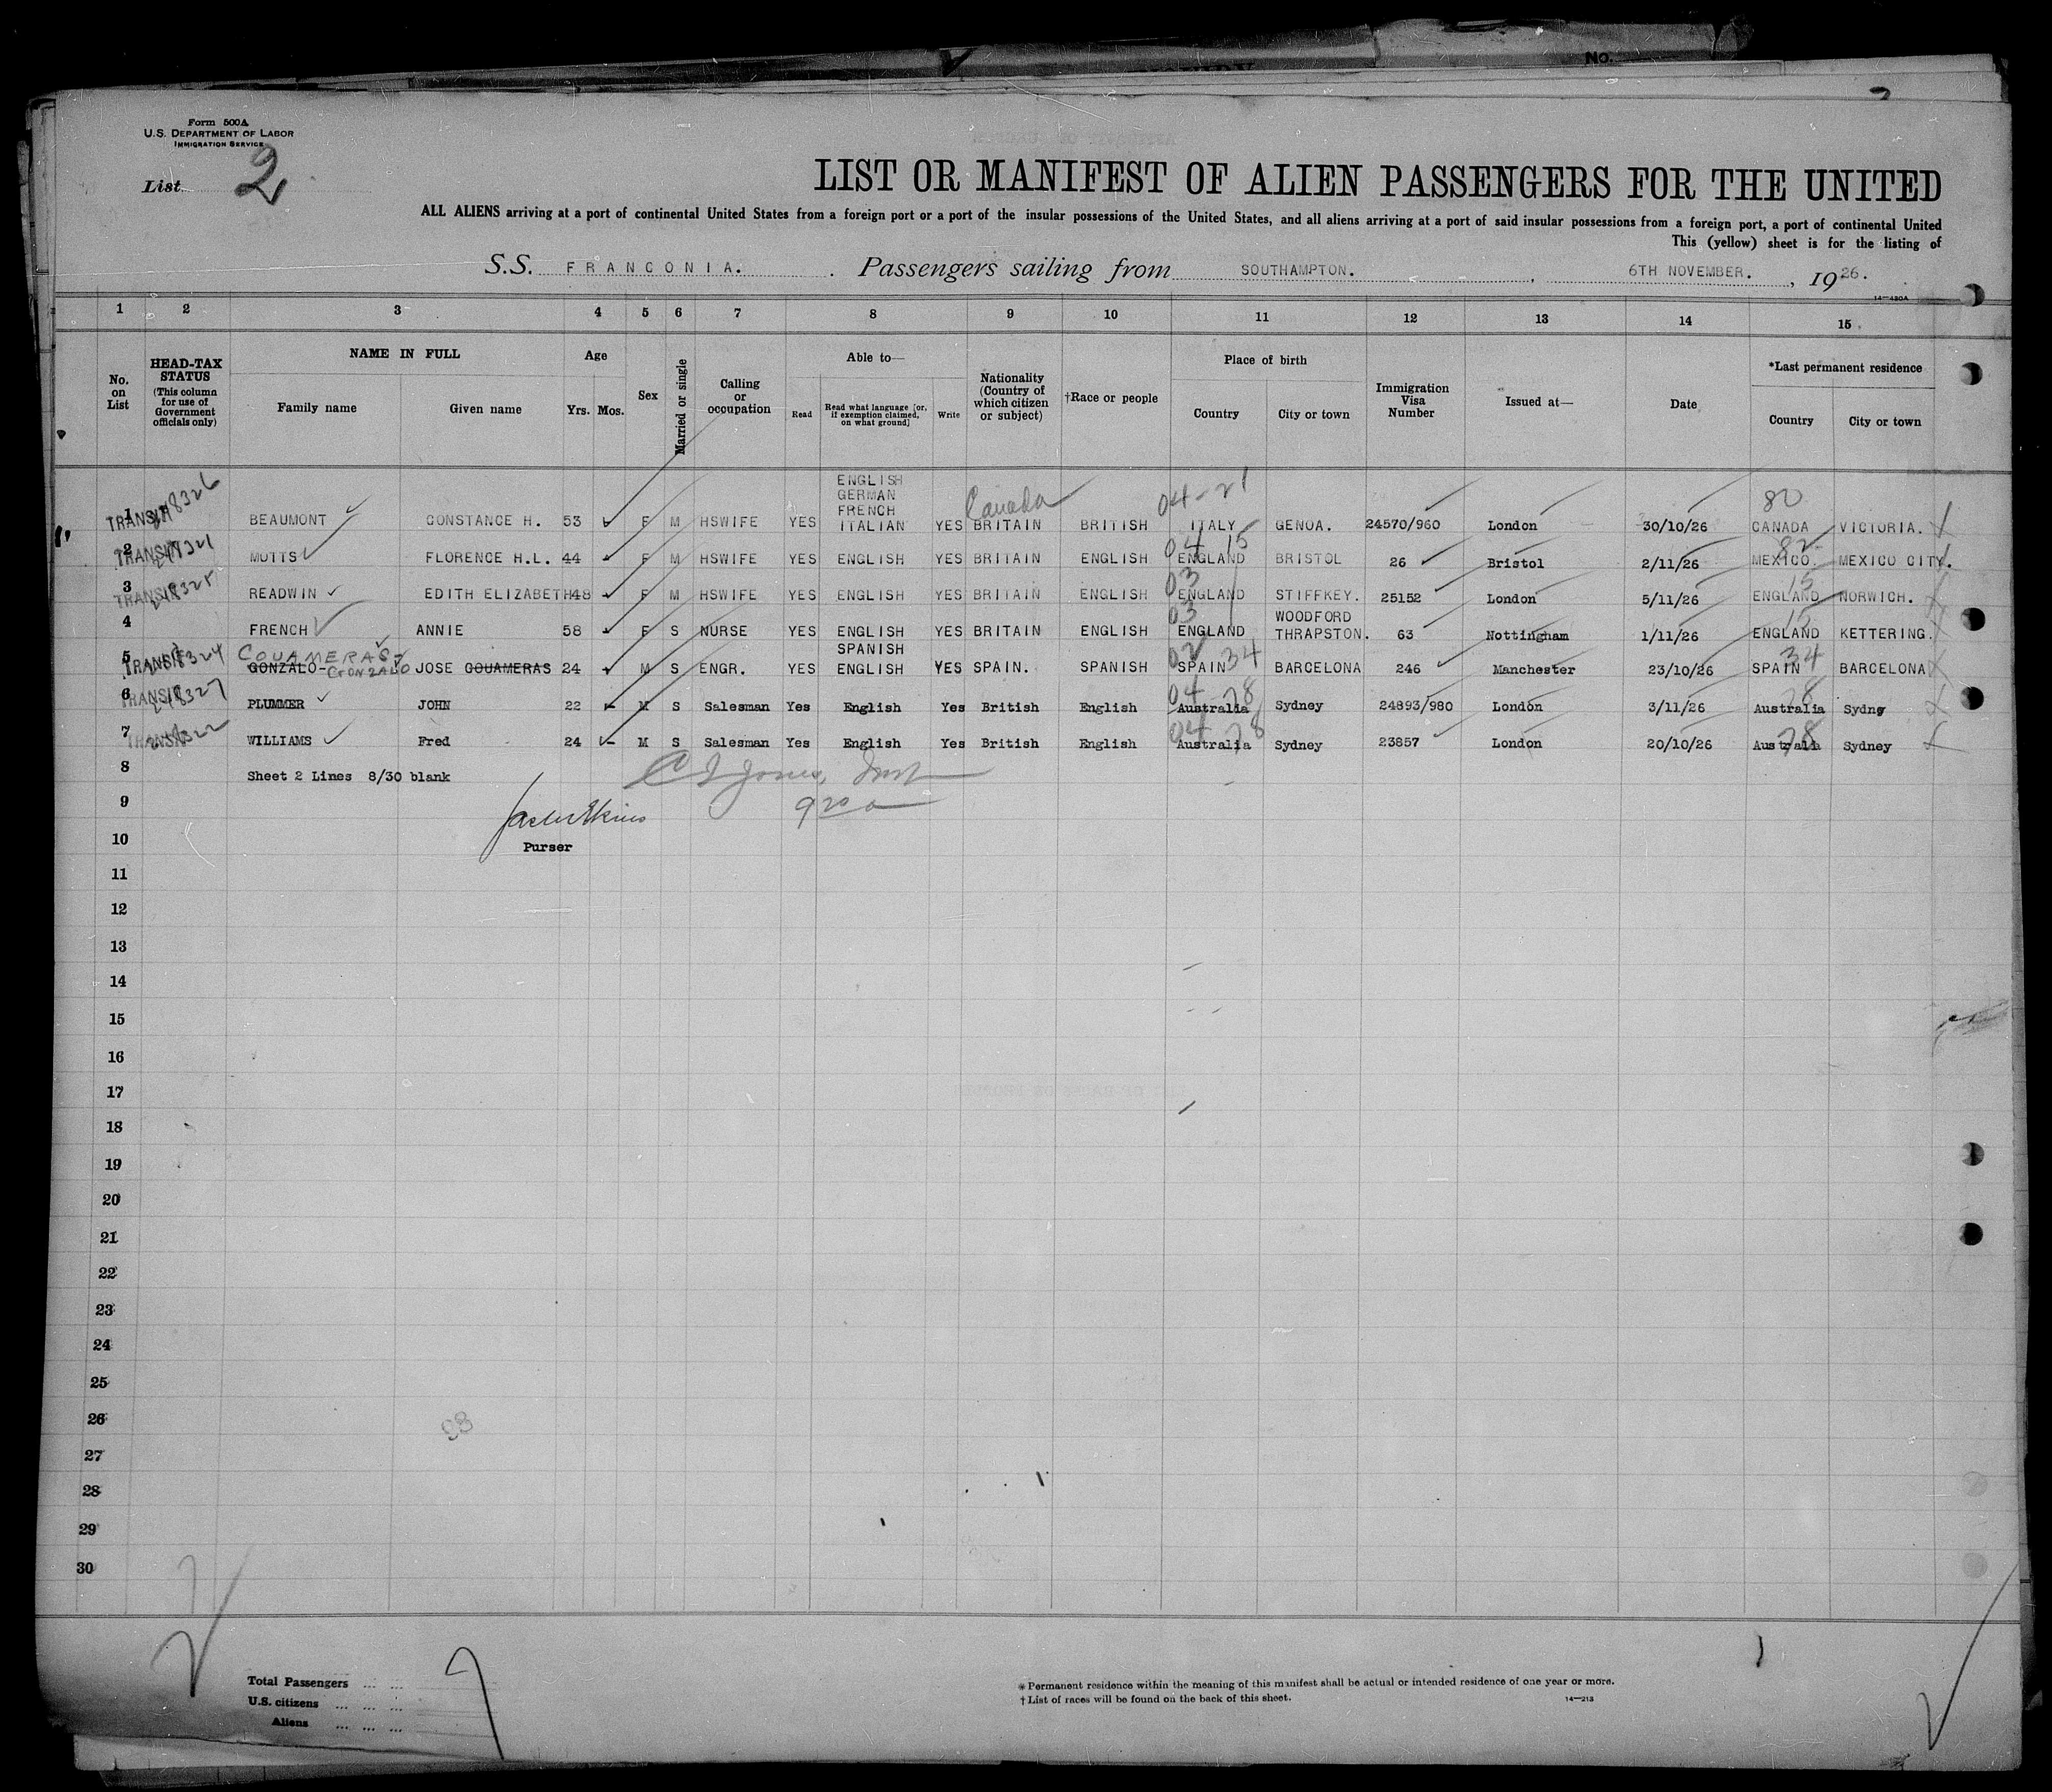 No.
Form 500A
U.S. DEPARTMENT OF LABOR
IMMIGRATION SERVICE
List 2
LIST OR MANIFEST OF ALIEN PASSENGERS FOR THE UNITED
ALL ALIENS arriving at a port of continental United States from a foreign port or a port of the insular possessions of the United States, and all aliens arriving at a port of said insular possessions from a foreign port, a port of continental United
This (yellow) sheet is for the listing of
S.S. FRANCONIA. Passengers sailing from SOUTHAMPTON. , 6TH NOVEMBER. , 1926.
14—430A
1 2 3 4 5 6 7 8 9 10 11 12 13 14 15
No. on List
HEAD-TAX STATUS (This column for use of Government officials only)
NAME IN FULL
Family name Given name
Age
Yrs. Mos.
Sex
Married or single
Calling or occupation
Able to—
Read Read what language [or, if exemption claimed, on what ground] Write
Nationality (Country of which citizen or subject)
†Race or people
Place of birth
Country City or town
Immigration Visa Number
Issued at—
Date
*Last permanent residence
Country City or town
ENGLISH
GERMAN
FRENCH Canada 04-21 80
1 TRANSIT BEAUMONT CONSTANCE H. 53 F M HSWIFE YES ITALIAN YES BRITAIN BRITISH ITALY GENOA. 24570/960 London 30/10/26 CANADA VICTORIA.
04 15 82
2 TRANSIT MUTTS FLORENCE H.L. 44 F M HSWIFE YES ENGLISH YES BRITAIN ENGLISH ENGLAND BRISTOL 26 Bristol 2/11/26 MEXICO. MEXICO CITY.
03 15
3 TRANSIT READWIN EDITH ELIZABETH 48 F M HSWIFE YES ENGLISH YES BRITAIN ENGLISH ENGLAND STIFFKEY. 25152 London 5/11/26 ENGLAND NORWICH.
03 WOODFORD 15
4 FRENCH ANNIE 58 F S NURSE YES ENGLISH YES BRITAIN ENGLISH ENGLAND THRAPSTON. 63 Nottingham 1/11/26 ENGLAND KETTERING.
COUAMERAS SPANISH 02 34 34
5 TRANSIT GONZALO-GONZALO JOSE COUAMERAS 24 M S ENGR. YES ENGLISH YES SPAIN. SPANISH SPAIN BARCELONA 246 Manchester 23/10/26 SPAIN BARCELONA
04 78 78
6 TRANSIT PLUMMER JOHN 22 M S Salesman Yes English Yes British English Australia Sydney 24893/980 London 3/11/26 Australia Sydng
04 78 78
7 TRANSIT WILLIAMS Fred 24 M S Salesman Yes English Yes British English Australia Sydney 23857 London 20/10/26 Australia Sydney
8 Sheet 2 Lines 8/30 blank
9
10 Purser
11
12
13
14
15
16
17
18
19
20
21
22
23
24
25
26 98
27
28
29
30
Total Passengers ... ...
U.S. citizens ... ... ...
Aliens ... ... ...
7
* Permanent residence within the meaning of this manifest shall be actual or intended residence of one year or more.
† List of races will be found on the back of this sheet.
14—213